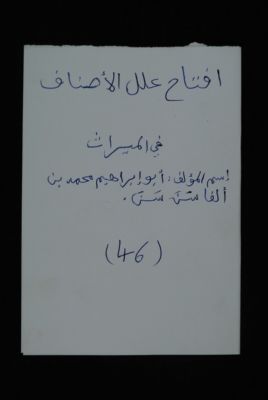 افتتاح علل الأصناف
في الميراث
إسم المؤلف: أبو إبراهيم محمد بن
ألفا
(46)